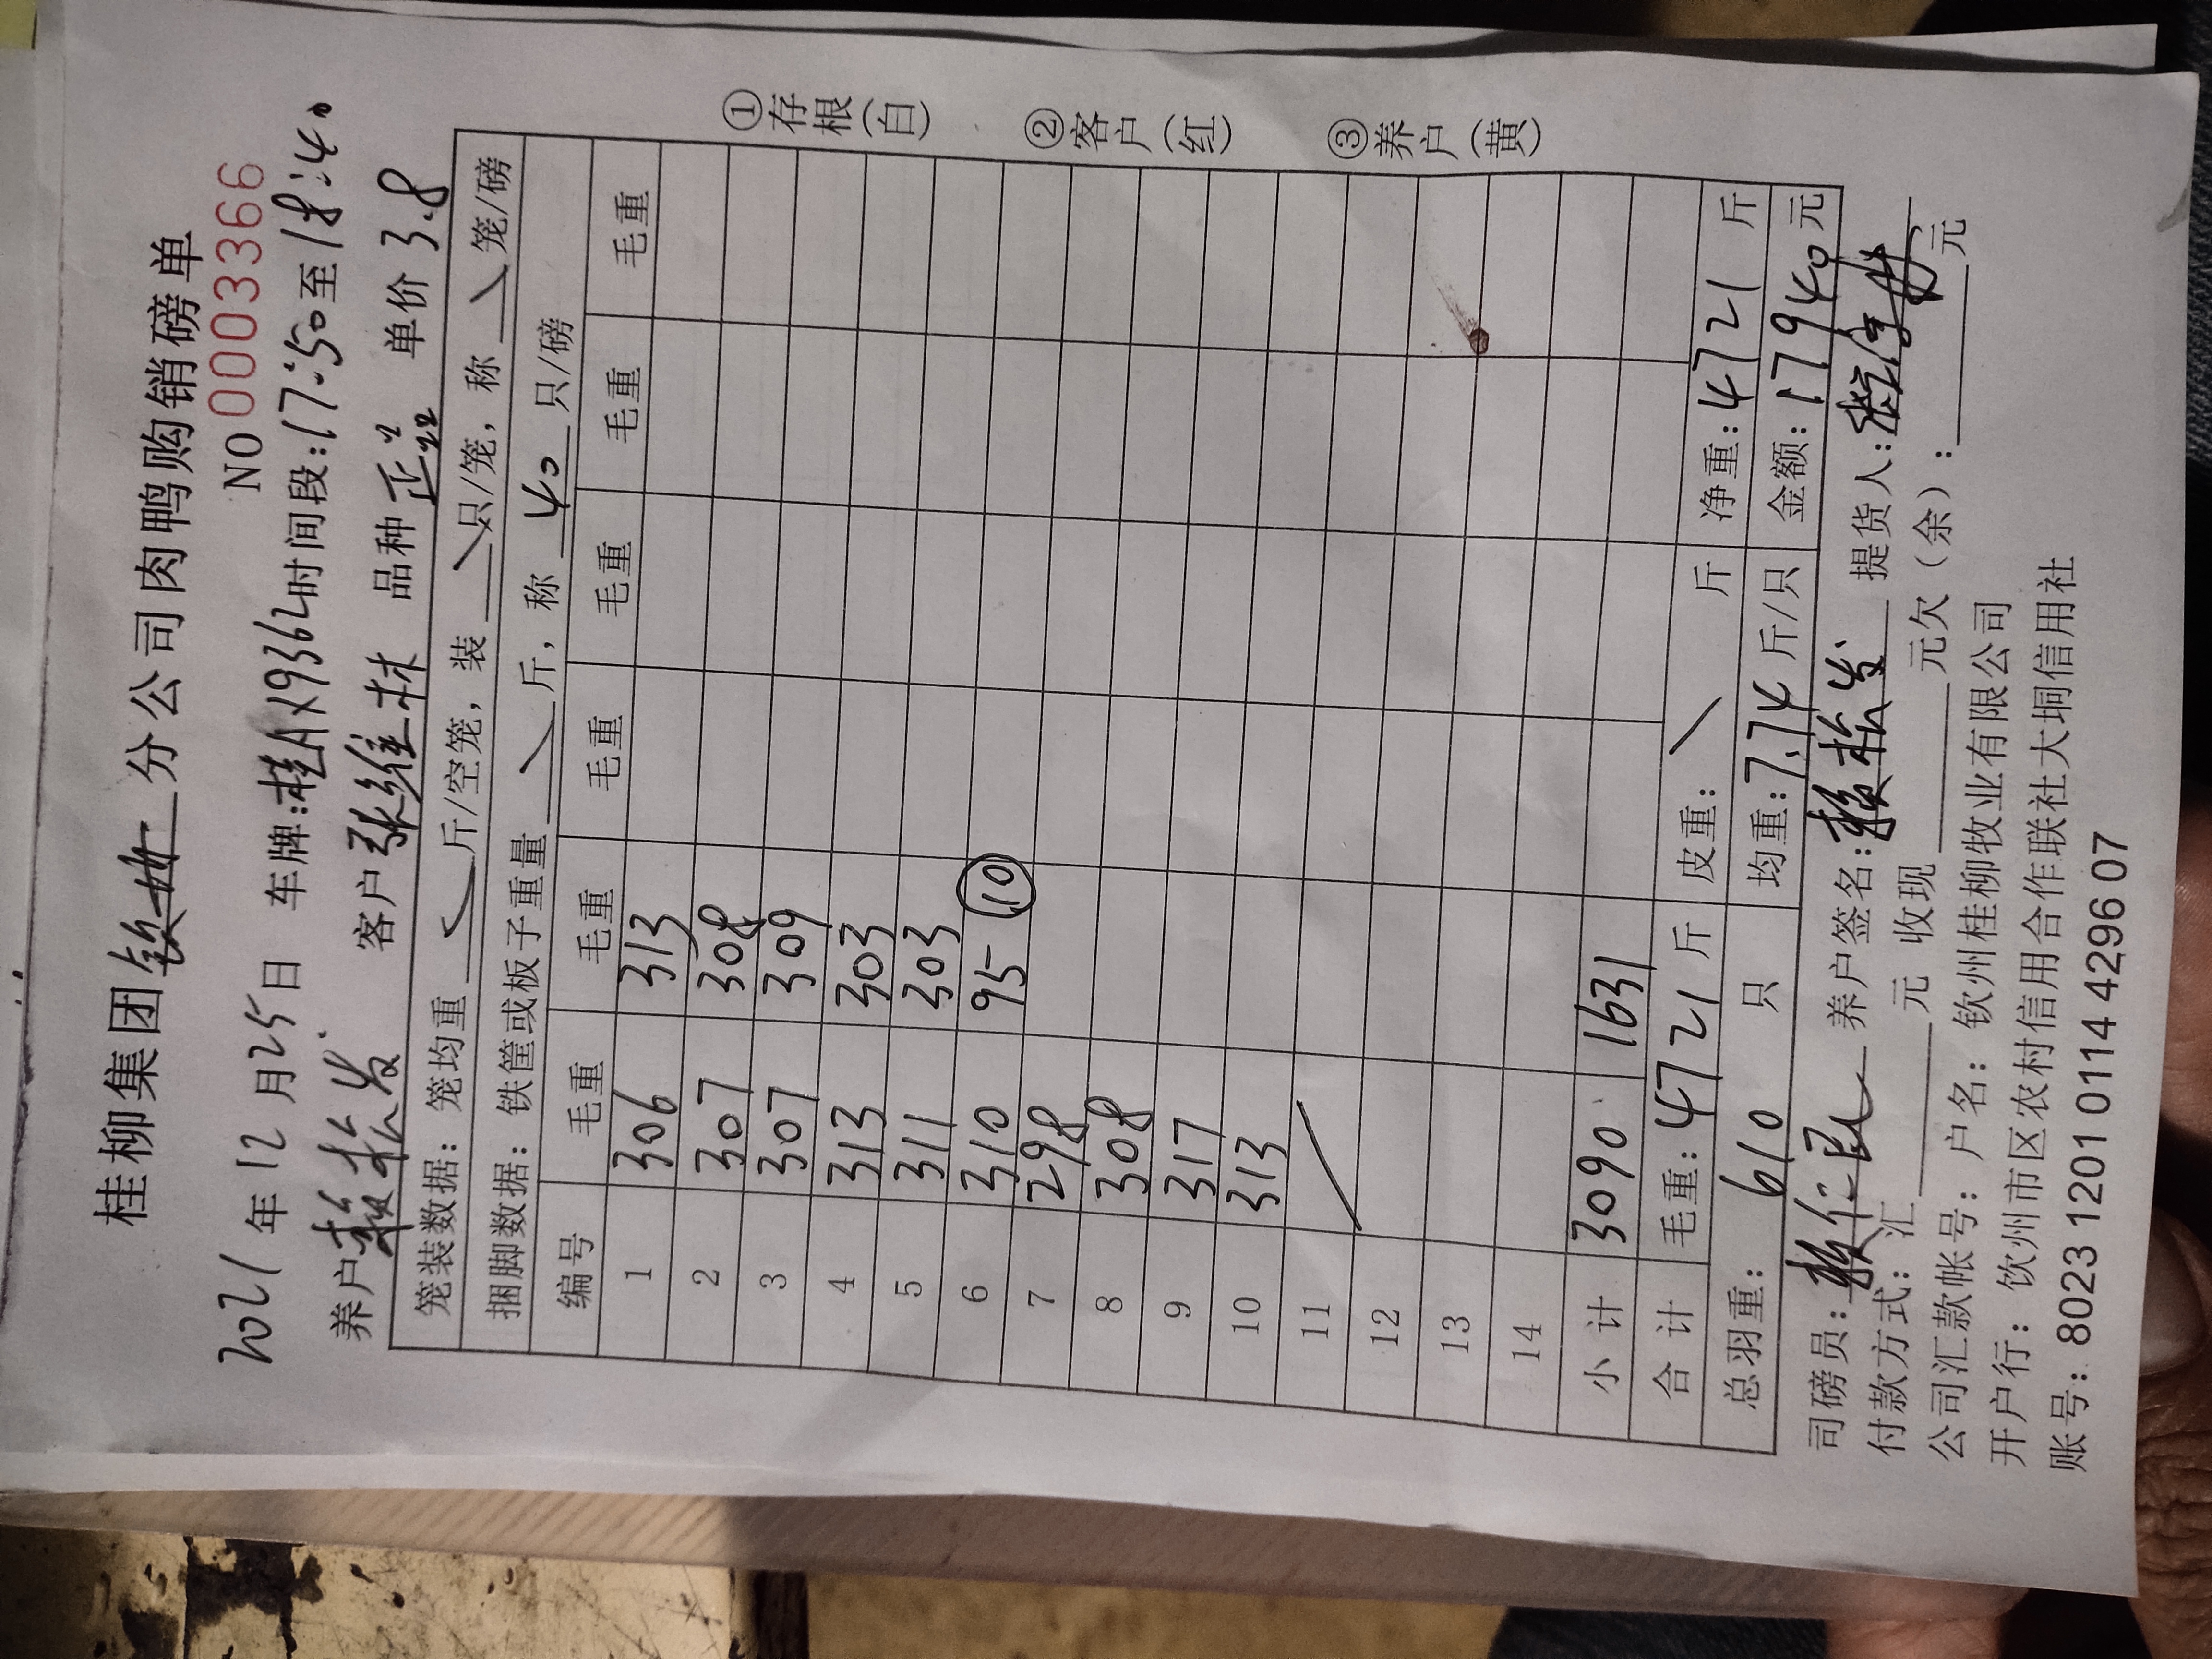 桂柳集团钦州分公司肉鸭购销磅单
NO 0003366
2021年12月25日 车牌:桂AX9362时间段:17:50至18:40
养户 赖松发 客户 张维林 品种 单价 3.8
笼装数据: 笼均重 斤/空笼, 装 只/笼, 称 笼/磅
捆脚数据: 铁筐或板子重量 斤, 称 40 只/磅
编号 毛重 毛重 毛重 毛重 毛重 毛重
1 306 313
2 307 308
3 307 309
4 313 303
5 311 303
6 310 95 ⑩
7 298
8 308
9 317
10 313
11
12
13
14
小计 3090 1631
合计 毛重: 4721 斤 皮重: 斤 净重: 4721 斤
总羽重: 610 只 均重: 7.74 斤/只 金额: 17940 元
司磅员: 养户签名: 赖松发 提货人:
付款方式: 汇 元 收现 元欠(余): 元
公司汇款帐号: 户名: 钦州桂柳牧业有限公司
开户行: 钦州市区农村信用合作联社大垌信用社
账号: 8023 1201 0114 4296 07
①存根(白)
②客户(红)
③养户(黄)